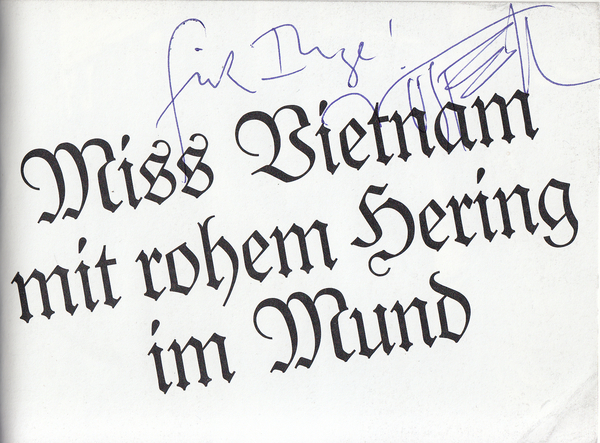 für Inge!
Miss Vietnam
mit rohem Hering
im Mund